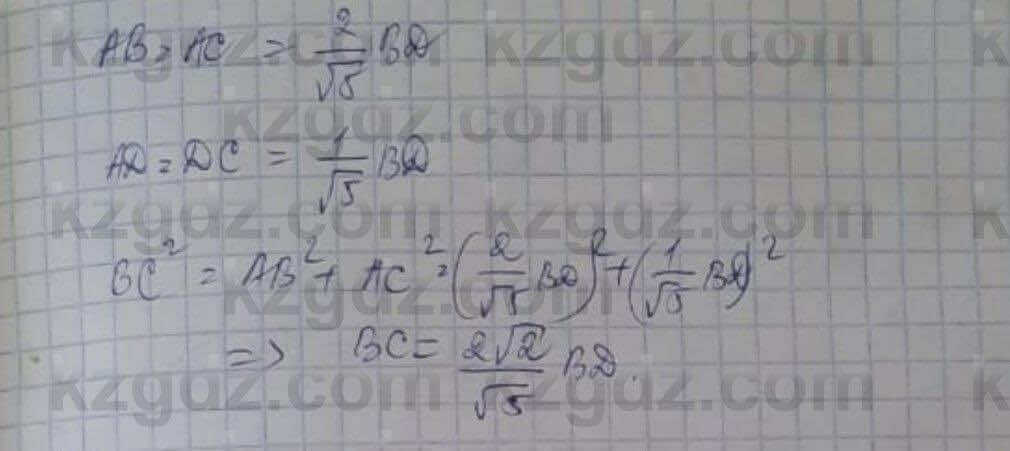 AB = AC = 2/√5 BD
AD = DC = 1/√5 BD
BC² = AB² + AC² = (2/√5 BD)² + (1/√5 BD)²
=> BC = 2√2/√5 BD.
kzgdz.com kzgdz.com
kzgdz.com
kzgdz.com kzgdz.com
kzgdz.com
kzgdz.com kzgdz.com